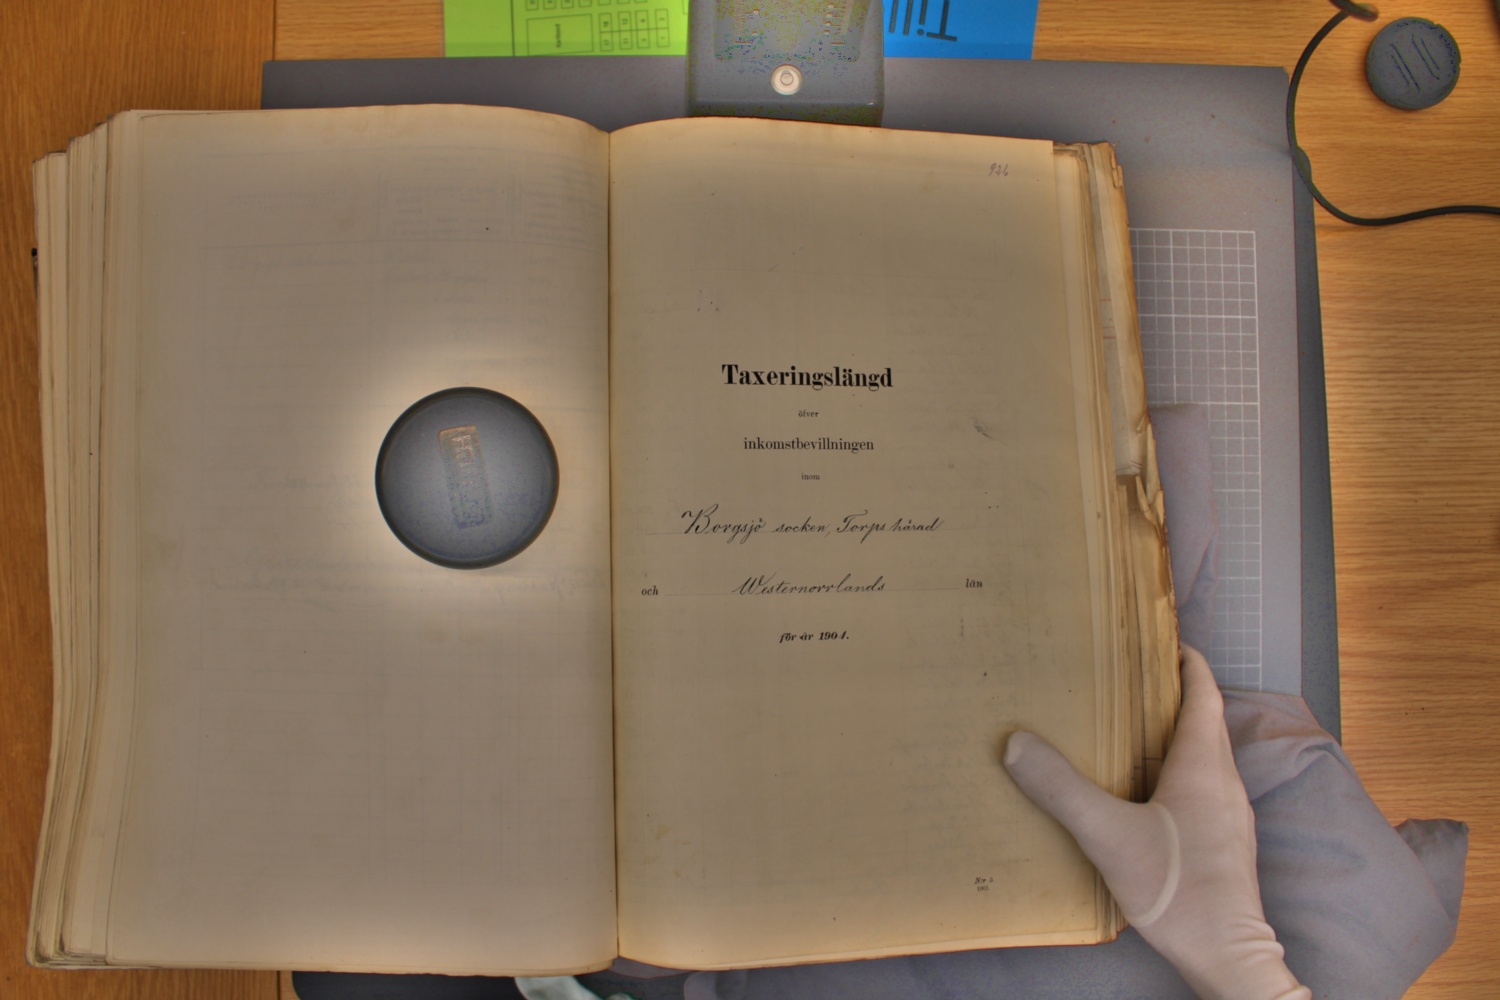 Till
926
Taxeringslängd
öfver
inkomstbevillningen
inom
Borgsjö socken, Torps härad
och Westernorrlands län
för år 1901.
N:r 5.